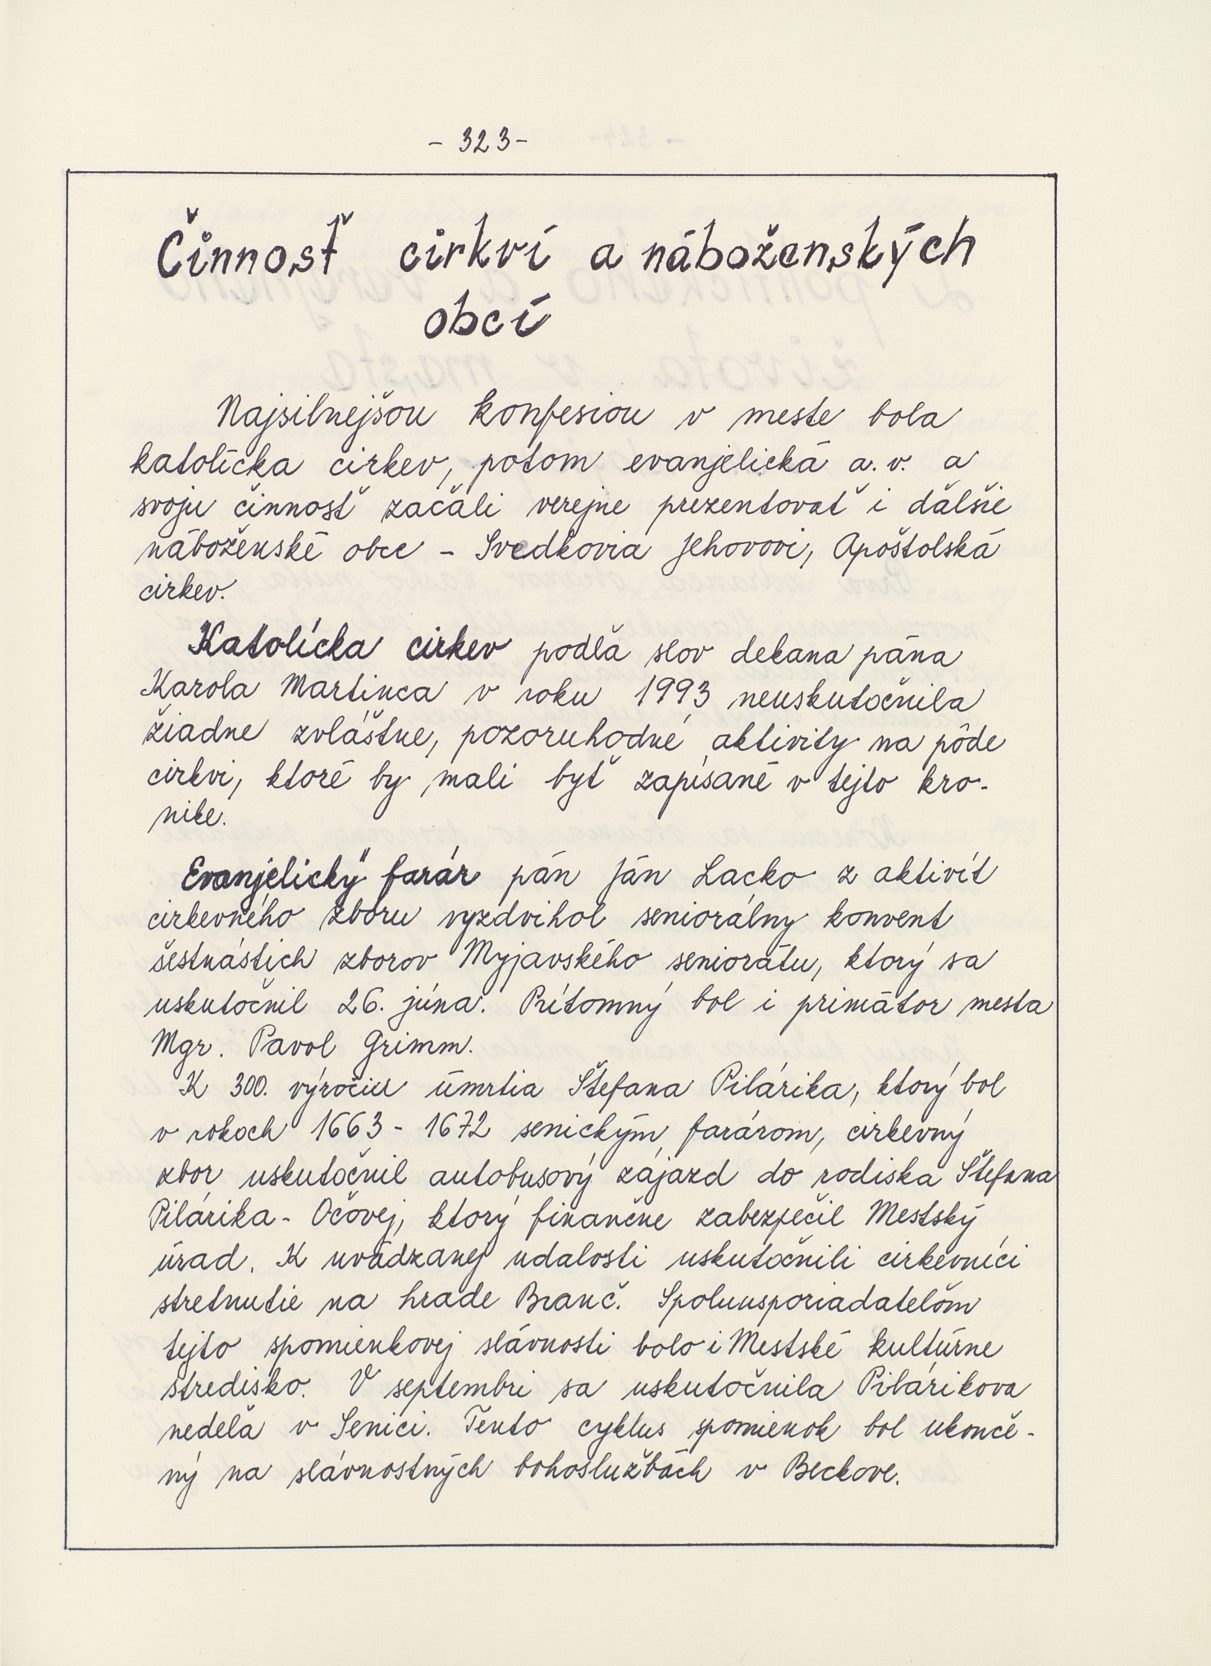 - 323 -
Činnosť cirkví a náboženských
obcí
Najsilnejšou konfesiou v meste bola
katolícka cirkev, potom evanjelická a. v. a
svoju činnosť začali verejne prezentovať i ďalšie
náboženské obce - Svedkovia Jehovovi, Apoštolská
cirkev.
Katolícka cirkev podľa slov dekana pána
Karola Martinca v roku 1993 neuskutočnila
žiadne zvláštne, pozoruhodné aktivity na pôde
cirkvi, ktoré by mali byť zapísané v tejto kro-
nike.
Evanjelický farár pán Ján Lacko z aktivít
cirkevného zboru vyzdvihol seniorálny konvent
šestnástich zborov Myjavského seniorátu, ktorý sa
uskutočnil 26. júna. Prítomný bol i primátor mesta
Mgr. Pavol Grimm.
K 300. výročiu úmrtia Štefana Pilárika, ktorý bol
v rokoch 1663 - 1672 senickým farárom, cirkevný
zbor uskutočnil autobusový zájazd do rodiska Štefana
Pilárika - Očovej, ktorý finančne zabezpečil Mestský
úrad. K uvádzanej udalosti uskutočnili cirkevníci
stretnutie na hrade Branč. Spoluusporiadateľom
tejto spomienkovej slávnosti bolo i Mestské kultúrne
stredisko. V septembri sa uskutočnila Pilárikova
nedeľa v Senici. Tento cyklus spomienok bol ukonče-
ný na slávnostných bohoslužbách v Beckove.